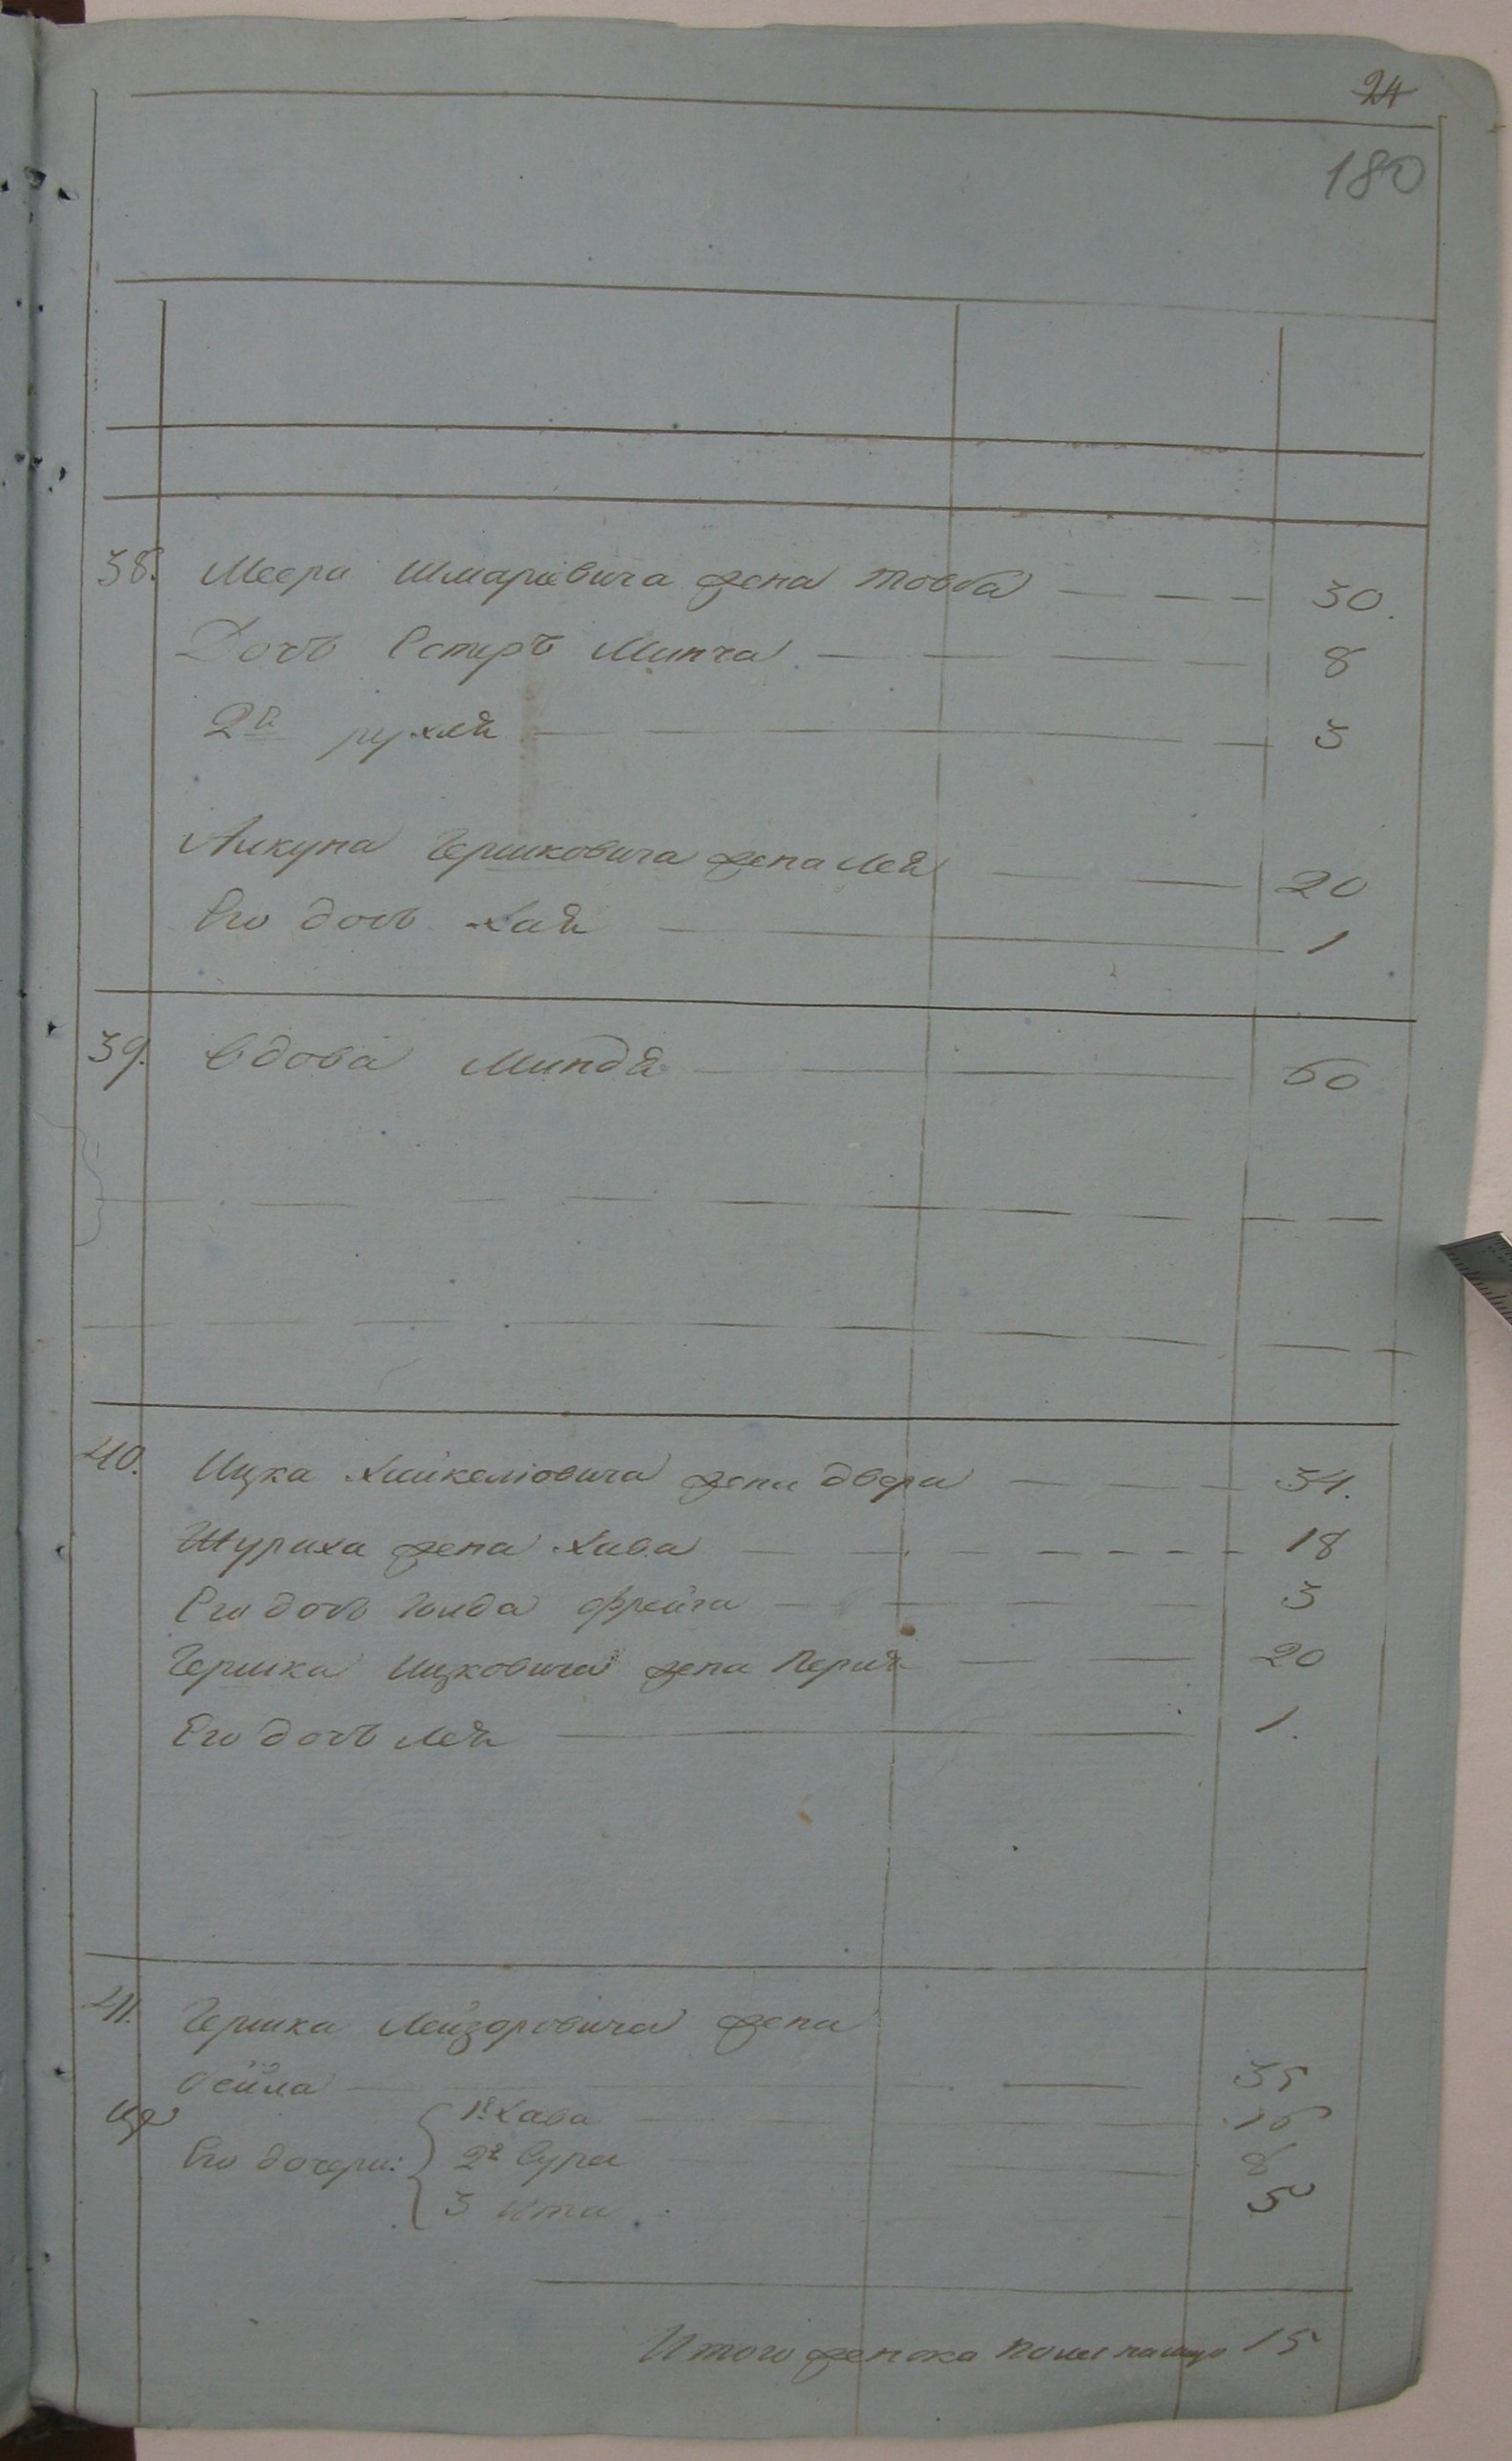 24
180
38. Меера Шмаріевича жена Товба 30.
Дочь Естеръ Минча 8
2я рухля 3
Анкуна Гершковича жена Лея 20
Его дочь Хая 1
39. Вдова Миндя 60
40. Ицка Хайкеліовича жена двера 34.
жена Хава 18
Его дочь Голда Фрейга 3
Гершка Ицковича жена Перля 20
Его дочь Лея 1.
41. Гершка Лейзоровича жена
Бейла 35
Его дочери: 1я Хава 16
2я Сура 8
3 Ита 5
Итого женска пола 15